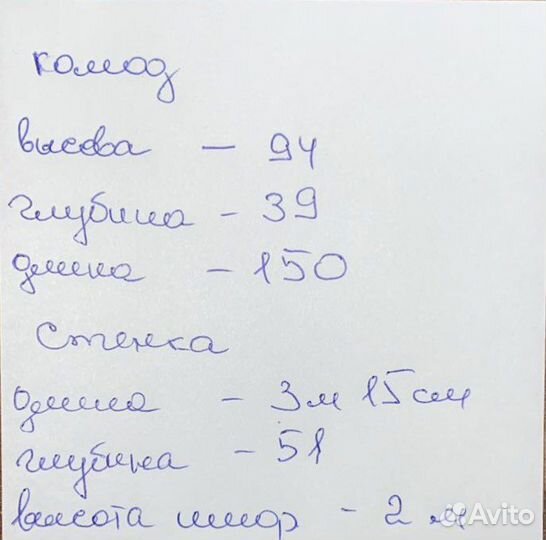 комод
высова – 94
глубина – 39
длина – 150
Стенка
длина – 3м 15см
глубина – 51
высота штор – 2 м
Avito